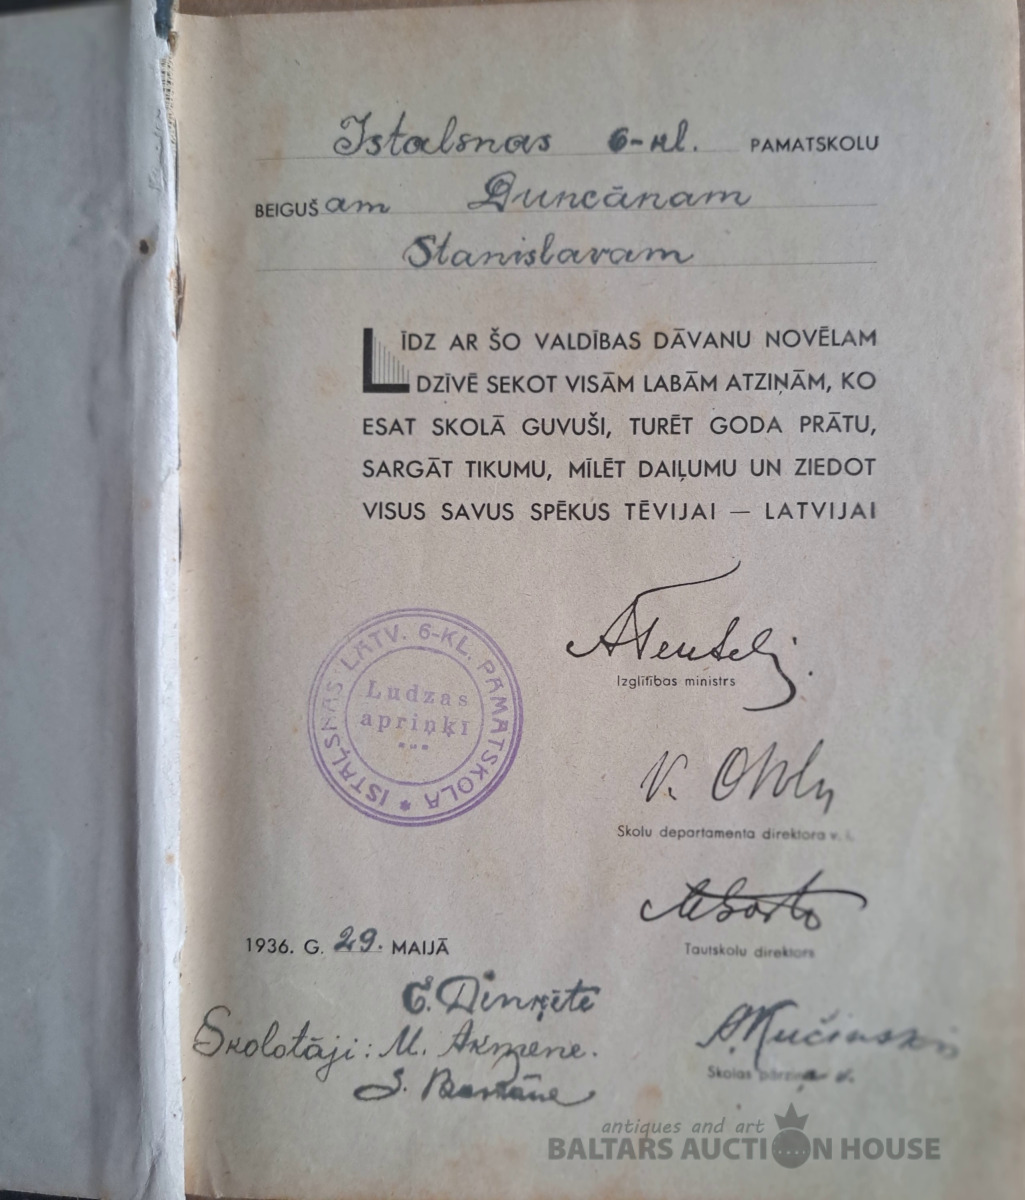 Istalsnas 6-kl. PAMATSKOLU
BEIGUŠam Duncānam
Stanislavam
LĪDZ AR ŠO VALDĪBAS DĀVANU NOVĒLAM
DZĪVĒ SEKOT VISĀM LABĀM ATZIŅĀM, KO
ESAT SKOLĀ GUVUŠI, TURĒT GODA PRĀTU,
SARGĀT TIKUMU, MĪLĒT DAIĻUMU UN ZIEDOT
VISUS SAVUS SPĒKUS TĒVIJAI — LATVIJAI
Izglītības ministrs
ISTAĻSNAS LATV. 6-KL. PAMATSKOLA *
Ludzas
apriņķī
V.
Skolu departamenta direktora v. i.
Tautskolu direktors
1936. G. 29. MAIJĀ
E. Dinķīte
Skolotāji: M. Akmene.
Kučinskis
Skolas pārzinis
antiques and art
BALTARS AUCTION HOUSE